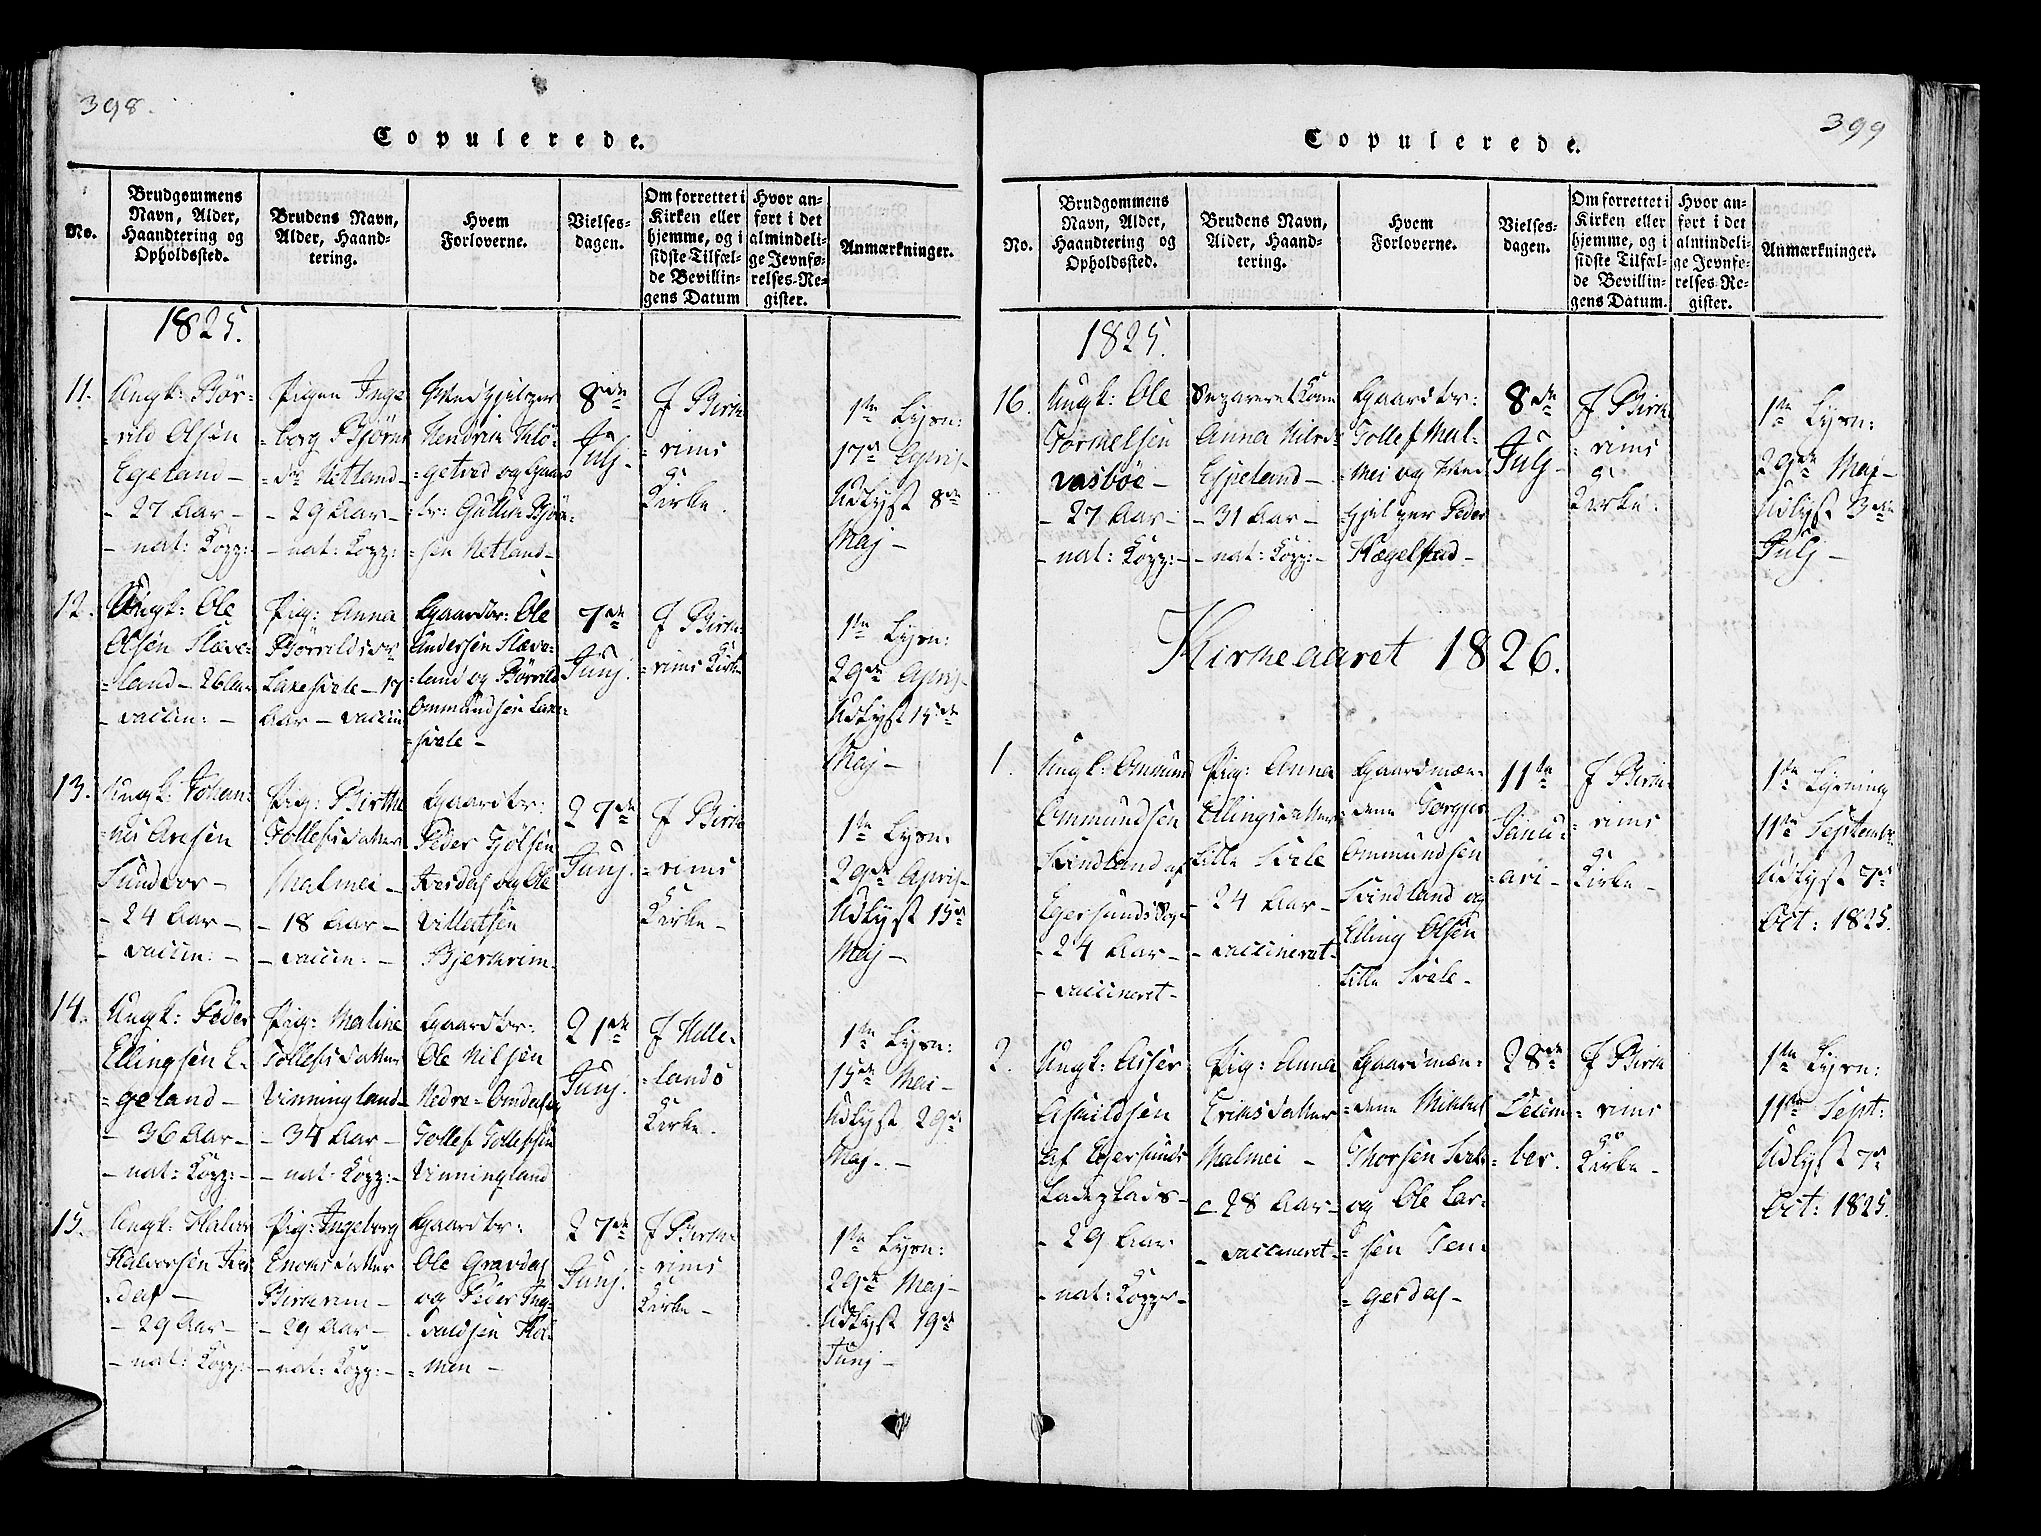 398.
Copulerede.
No.
Brudgommens
Navn, Alder,
Haandtering og
Opholdssted.
Brudens Navn,
Alder, Haand-
tering.
Hvem
Forloverne.
Vielses-
dagen.
Om forrettet i
Kirken eller
hjemme, og i
sidste Tilfæl-
de Bevillin-
gens Datum
Hvor an-
ført i det
almindeli-
ge Jevnfø-
relses-Re-
gister.
Anmærkninger.
1825.
11.
Ungk: Bør-
-rild Olsen
Egeland -
- 27 Aar -
- nat: Kopp: -
Pigen Inge
-borg Bjørns
-dr Netland -
- 29 Aar -
- nat: Kopp: -
Medhjelper
Hendrik Klø-
-getved og Gaard
-br: Guttorm Bjørn-
-sen Netland -
8de
Julj -
I Birk-
-rims
Kirke.
1te Lysn:
17de April -
Udlyst 8de
Maj -
12.
Ungk: Ole
Olsen Slæve-
-land - 26 Aar
- vaccin: -
Pig: Anna
Børrildsdr
Laxesvele - 17
Aar - vaccin
Gaardbr: Ole
Andersen Slæve-
-land og Børrild
Ommundsen Laxe-
-svele -
7de
Junj.
I Birk-
-rims Kirke
1te Lysn:
29de April -
Udlyst 15de
Maj -
13.
Ungk: Johan-
-nes Arnsen
Sundvor -
- 24 Aar -
- vaccin: -
Pig: Birthe
Tollefsdatter
Malmei -
- 18 Aar -
- vaccin: -
Gaardbr:
Peder
og Ole
Villatsen
Bjerkrim -
27de
Junj.
I Birk-
-rims
Kirke -
1te Lysn:
29de April -
Udlyst 15de
Maj -
14.
Ungk: Peder
Ellingsen E-
-geland -
- 36 Aar -
- nat: Kopp: -
Pig: Maline
Tollefsdatter
Vinningland -
- 34 Aar -
- nat: Kopp: -
Gaardbr:
Ole Nilsen
Nedre- Omdal og
Tollef Tollefsen
Vinningland
21de
Junj.
I Helle-
-lands
Kirke.
1te Lysn:
15de Mai -
Udlyst 29de
Maj -
15.
Ungk: Halvor
Halvorsen
-dal -
- 29 Aar -
- nat: Kopp: -
Pig: Ingeborg
Enoksdatter
Birkrem -
- 29 Aar -
- nat: Kopp: -
Gaardbr:
Ole Gravdal
og Peder Ing-
-valdsen Hol-
-men -
27de
Junj.
I Birk-
-rims
Kirke -
1te Lysn:
29de Maj -
Udlyst 19de
Junj -
399
Copulerede.
No.
Brudgommens
Navn, Alder,
Haandtering og
Opholdssted.
Brudens Navn,
Alder, Haand-
tering.
Hvem
Forloverne.
Vielses-
dagen.
Om forrettet i
Kirken eller
hjemme, og i
sidste Tilfæl-
de Bevillin-
gens Datum.
Hvor an-
ført i det
almindeli-
ge Jevnfø-
relses-Re-
gister.
Anmærkninger.
1825.
16.
Ungk: Ole
Tormelsen
Vasbøe -
- 27 Aar -
- nat: Kopp: -
Separeret Kone
Anna Nilsdr
Espeland -
- 31 Aar -
- nat: Kopp: -
Gaardbr:
Tollef Mal-
-mei og Med
-hjelper Peder
Hægelstad -
8de
Julj -
I Birk-
-rims
Kirke.
1te Lysn:
29de Maj -
Udlyst 3die
Julj -
Kirkeaaret 1826.
1.
Ungk: Ommund
Ommundsen
Svindland af
Egersunds Sogn
- 24 Aar -
- vaccineret -
Pig: Anna
Ellingsdatter
Lille Svele
- 24 Aar -
- vaccineret -
Gaardmæn-
-dene Torgjer
Ommundsen
Svindland og
Elling Olsen
Lille Svele -
11te
Janu-
-ari -
I Birk-
-rims
Kirke -
1te Lysning
11te Septembr
Udlyst 7de
Oct: 1825.
2.
Ungk: Asser
Asvildsen
af Egersunds
Ladeplads -
- 29 Aar
- nat: Kopper -
Pig: Anna
Eriksdatter
Malmei -
- 28 Aar -
- vaccineret -
Gaardmæn-
-dene Mikkel
Thorsen
og Ole Lar-
-sen Ten-
-gesdal -
28de
Decem
-ber.
I Birk
-rims
Kirke -
1te Lysn:
11te Sept:
Udlyst 7de
Oct: 1825.